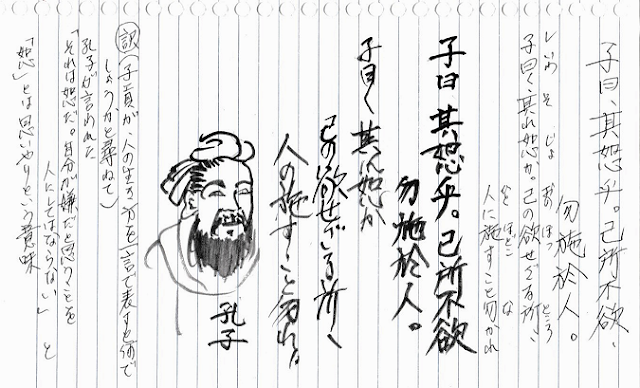 子曰、其恕乎。己所不欲、
勿施於人。
し いわ そ じょ おの ほっ ところ
子曰く、其れ恕か。己の欲せざる所、
ほどこ な
人に施すこと勿かれ
子曰 其恕乎。己所不欲
勿施於人。
子曰く 其れ恕か
己の欲せざる所、
人の施すこと勿れ。
孔子
訳(子貢が、人の生き方を一言で表すと何で
しょうかと尋ねて)
孔子が言われた
「それは恕だ。自分が嫌だと思うことを
人にしてはならない」と
「恕」とは思いやりという意味